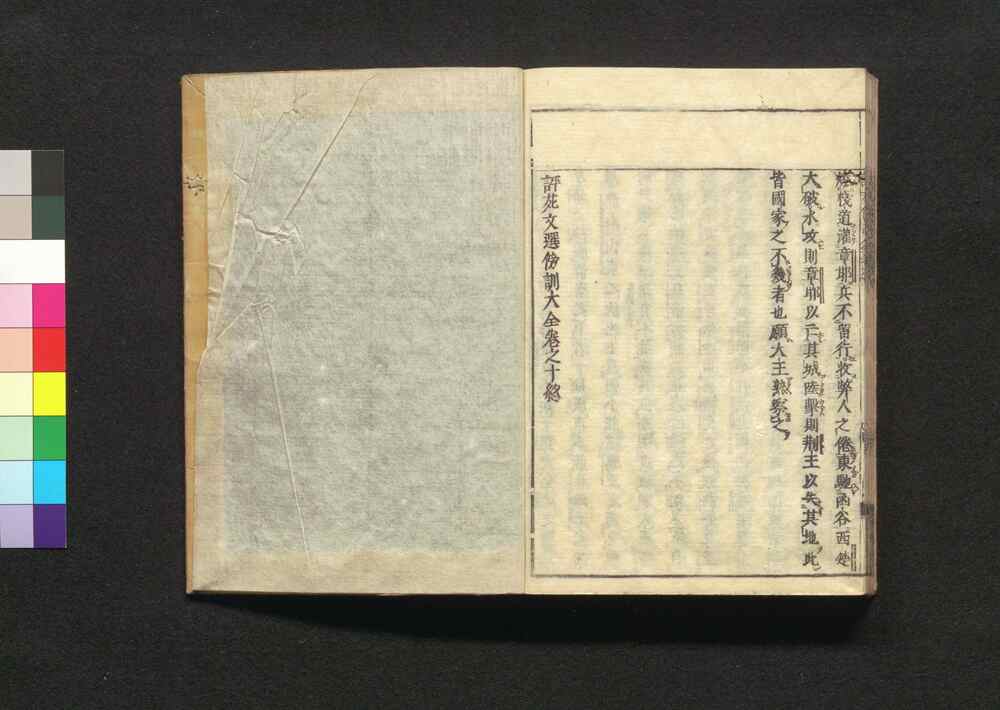 燒棧道灌章邯兵不留行收弊人之倦東馳函谷西楚
大破水攻則章邯以亡其城陸擊則荆王以失其地此
皆國家之不幾者也願大王熟察之
評苑文選傍訓大全卷之十終